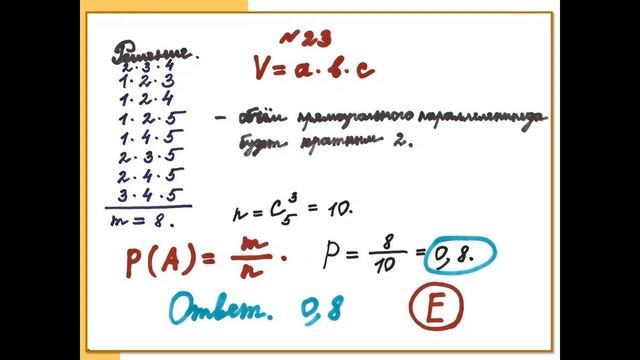 Решение.
№23
V = a · b · c
2 · 3 · 4
1 · 2 · 3
1 · 2 · 4
1 · 2 · 5
1 · 4 · 5
2 · 3 · 5
2 · 4 · 5
3 · 4 · 5
m = 8.
– объём прямоугольного параллелепипеда
будет кратным 2.
n = C₅³ = 10.
P(A) = m/n .
P = 8/10 = 0,8.
Ответ. 0,8
E